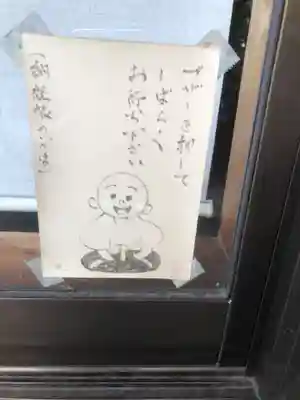 ブザーを押して
しばらく
お待ち下さい